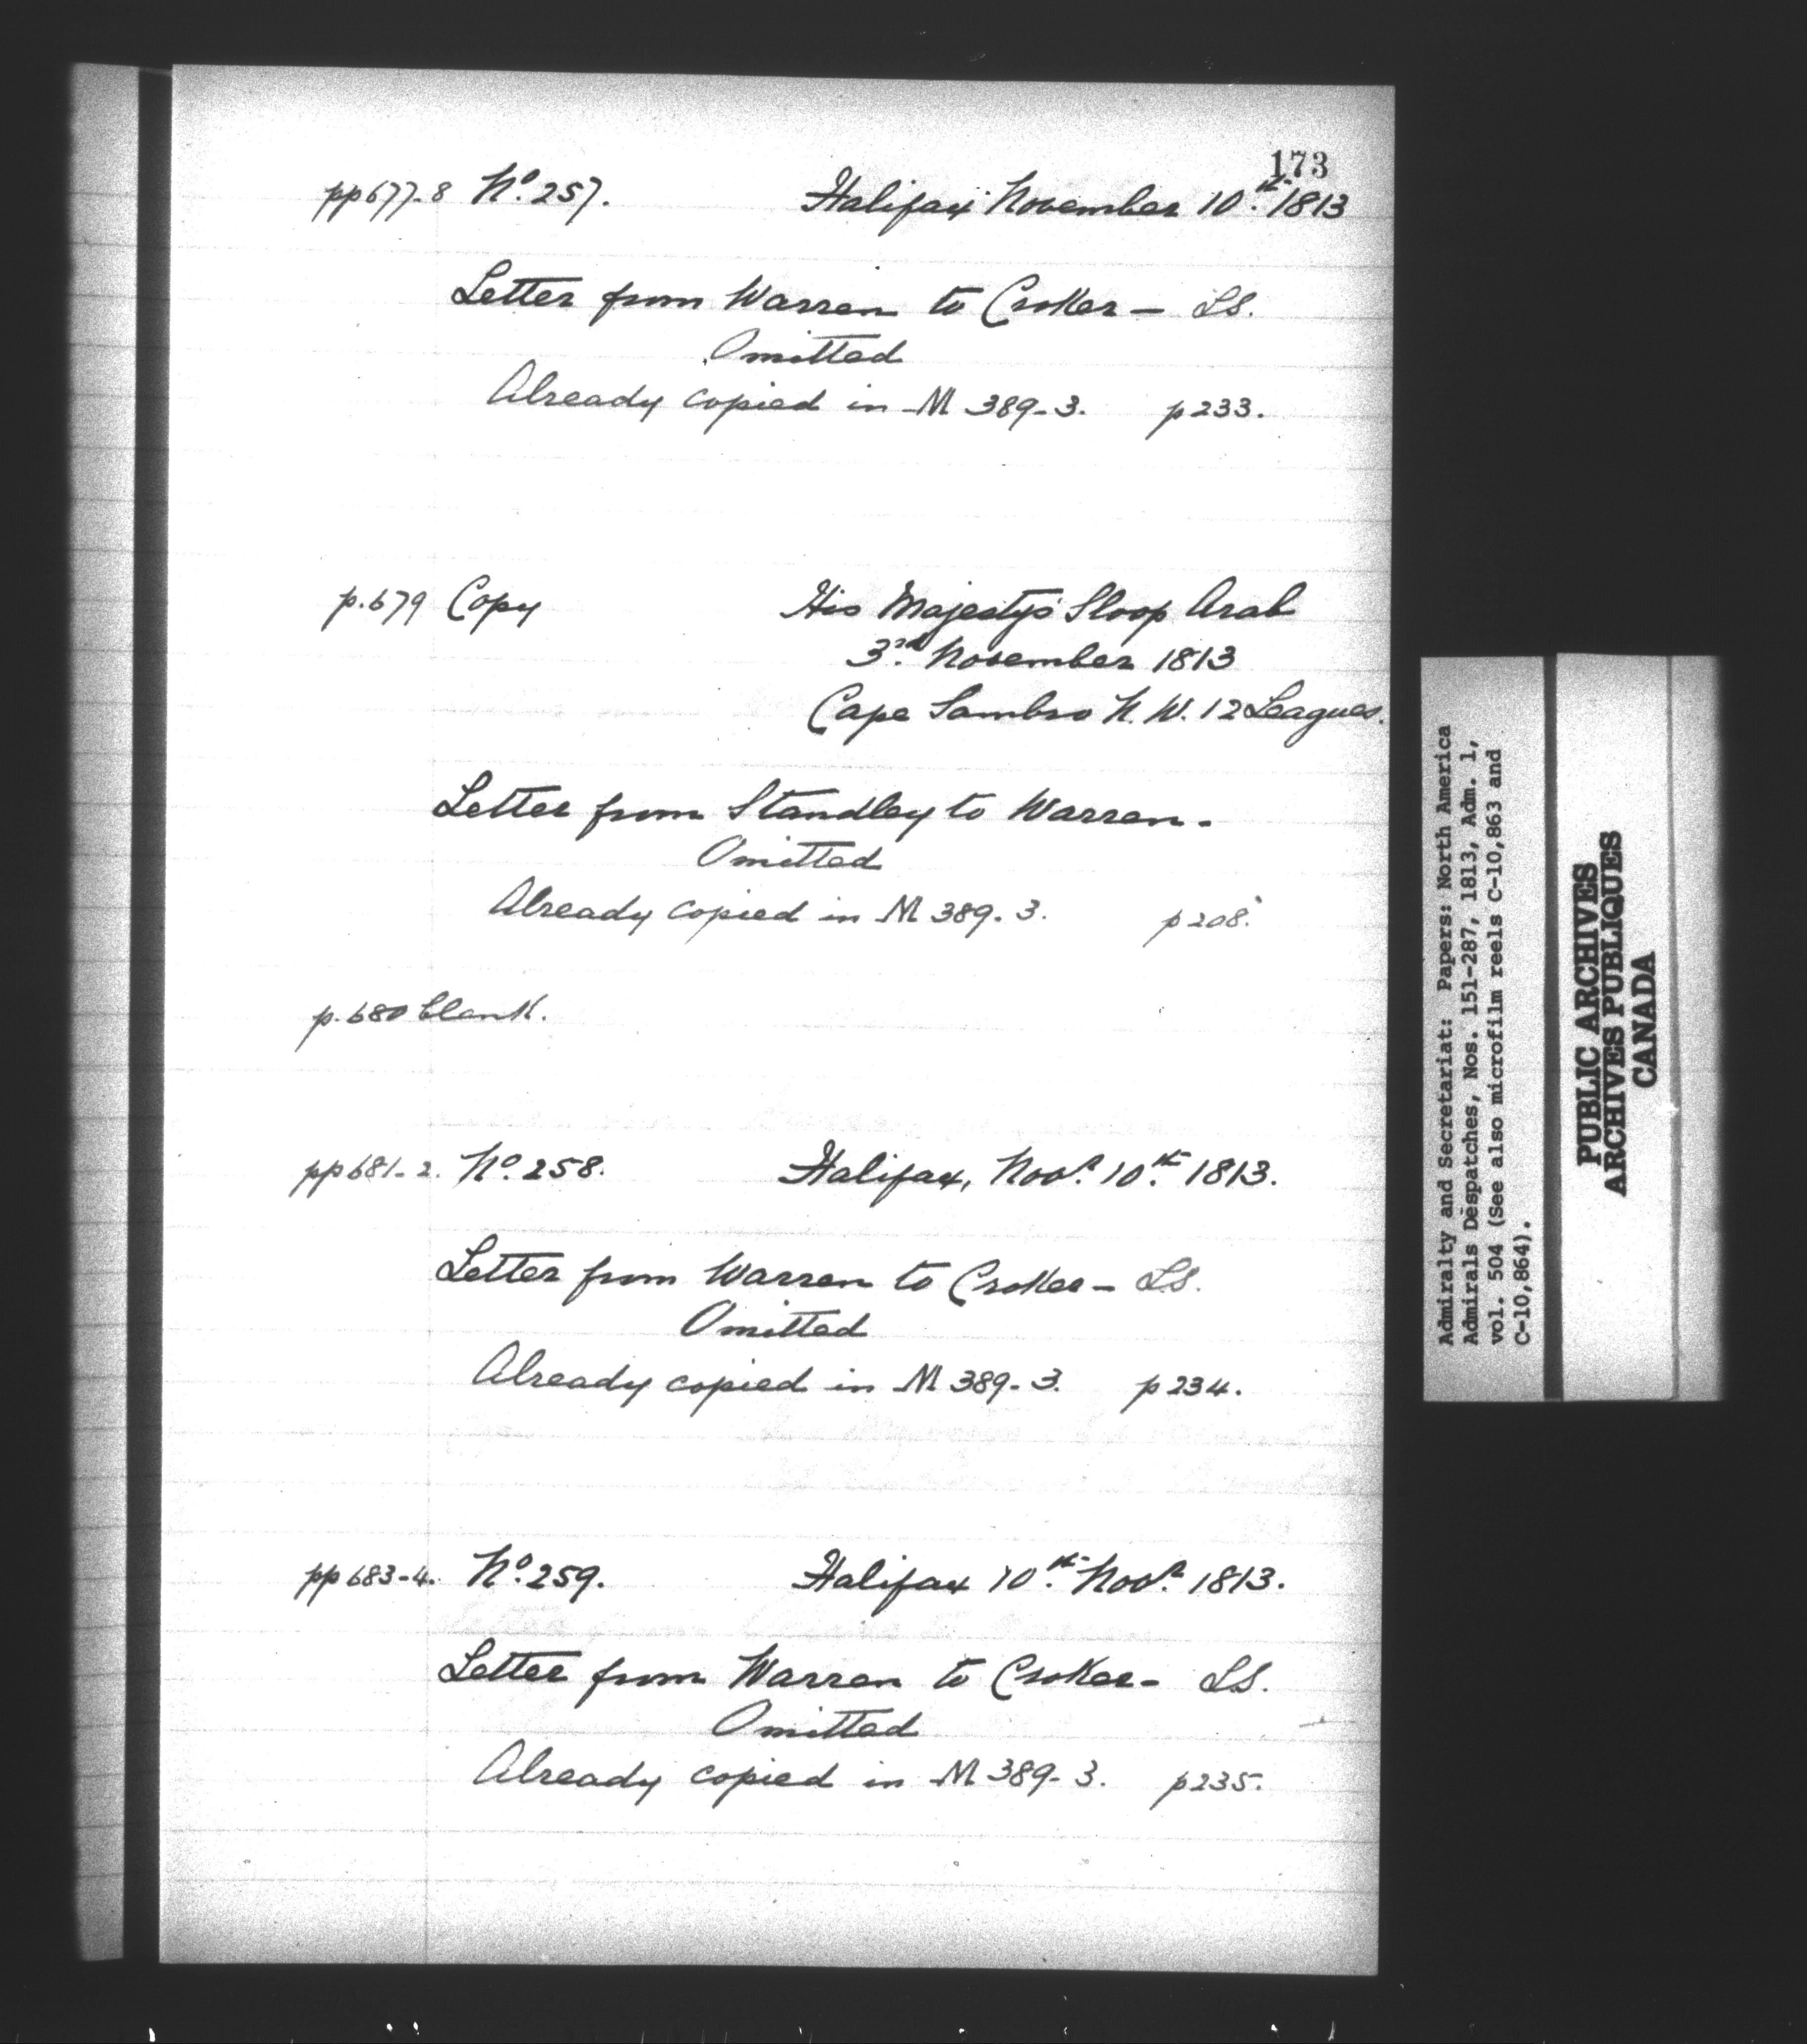 173
pp 677-8 No. 257. Halifax November 10th. 1813
Letter from Warren to Croker - LS.
Omitted
Already copied in M 389-3. p 233.
p. 679 Copy His Majesty's Sloop Arab
3rd. November 1813
Cape Sambro N. W. 12 Leagues.
Letter from Standley to Warren.
Omitted
Already copied in M 389. 3. p 208.
p. 680 blank.
pp 681-2. No. 258. Halifax, Novr. 10th. 1813.
Letter from Warren to Croker - LS.
Omitted
Already copied in M 389-3. p 234.
pp 683-4. No. 259. Halifax 10th. Novr. 1813.
Letter from Warren to Croker - LS.
Omitted
Already copied in M 389-3. p 235.
Admiralty and Secretariat: Papers: North America
Admirals Despatches, Nos. 151-287, 1813, Adm. 1,
vol. 504 (See also microfilm reels C-10,863 and
C-10,864).
PUBLIC ARCHIVES
ARCHIVES PUBLIQUES
CANADA